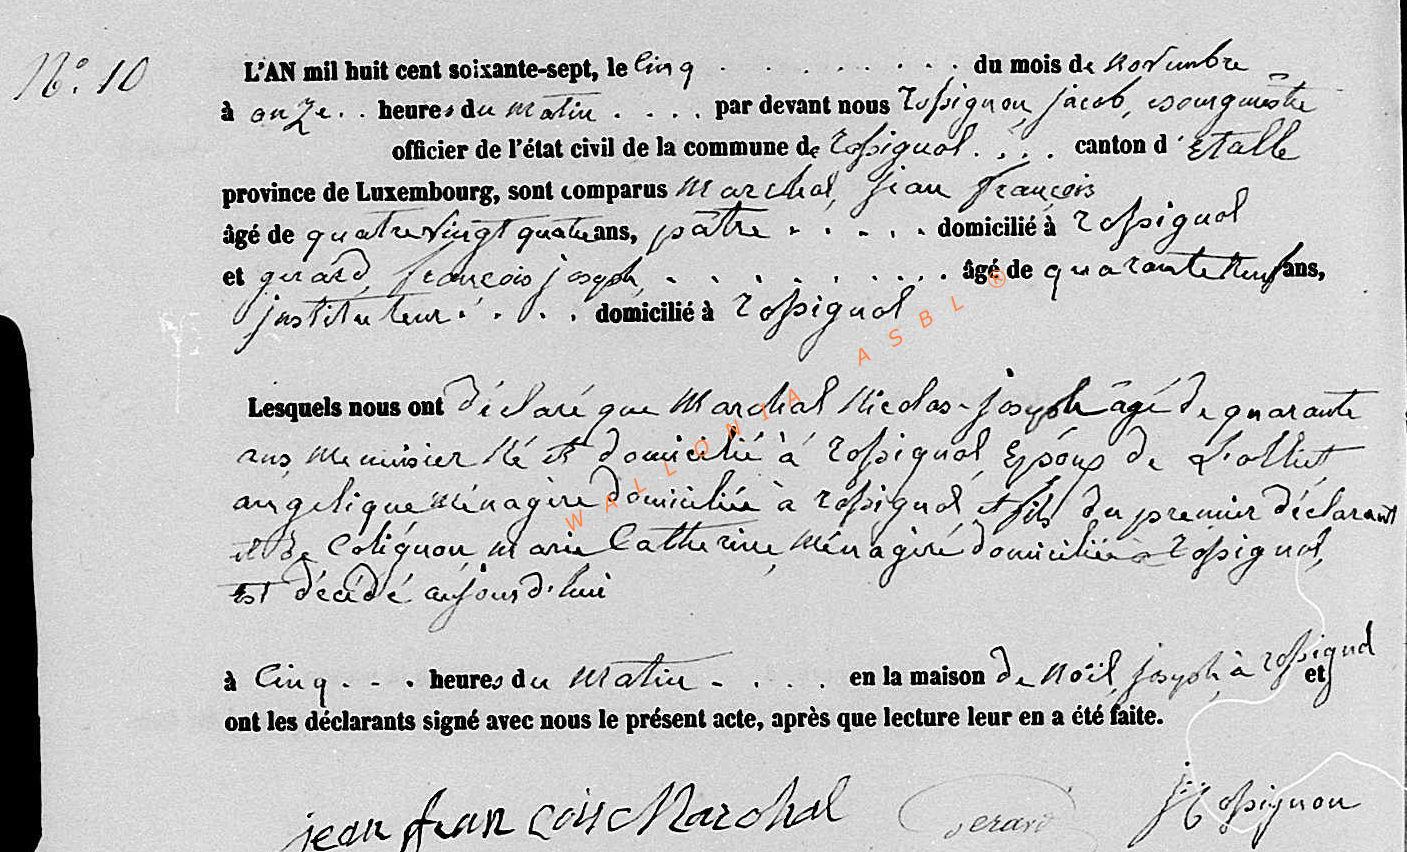 N.° 10
L'AN mil huit cent soixante-sept, le Cinq . . . . . . . . . du mois de novembre
à onze . . heures du matin . . . . par devant nous Rossignon, Jacob, Bourgmestre
officier de l'état civil de la commune de Rossignol . . . . canton d'Etalle
province de Luxembourg, sont comparus Marchal, jean françois
âgé de quatre vingt quatre ans, pâtre . . . . . domicilié à Rossignol
et gerard, françois joseph, . . . . . . . . . âgé de quarante neuf ans,
jnstituteur . . . . domicilié à Rossignol
Lesquels nous ont déclaré que Marchal Nicolas-joseph âgé de quarante
ans, Menuisier Né et domicilié à Rossignol, Epoux de
angelique Ménagère domiciliée à Rossignol, et fils du premier déclarant
et de Colignon, Marie Catherine, Ménagère domiciliée à Rossignol,
Est décédé aujourd'hui
à Cinq . . . heures du Matin . . . . en la maison de Noël, joseph, à Rossignol et
ont les déclarants signé avec nous le présent acte, après que lecture leur en a été faite.
jean françois Marchal Gerard J Rossignon
WALLONIA ASBL ®